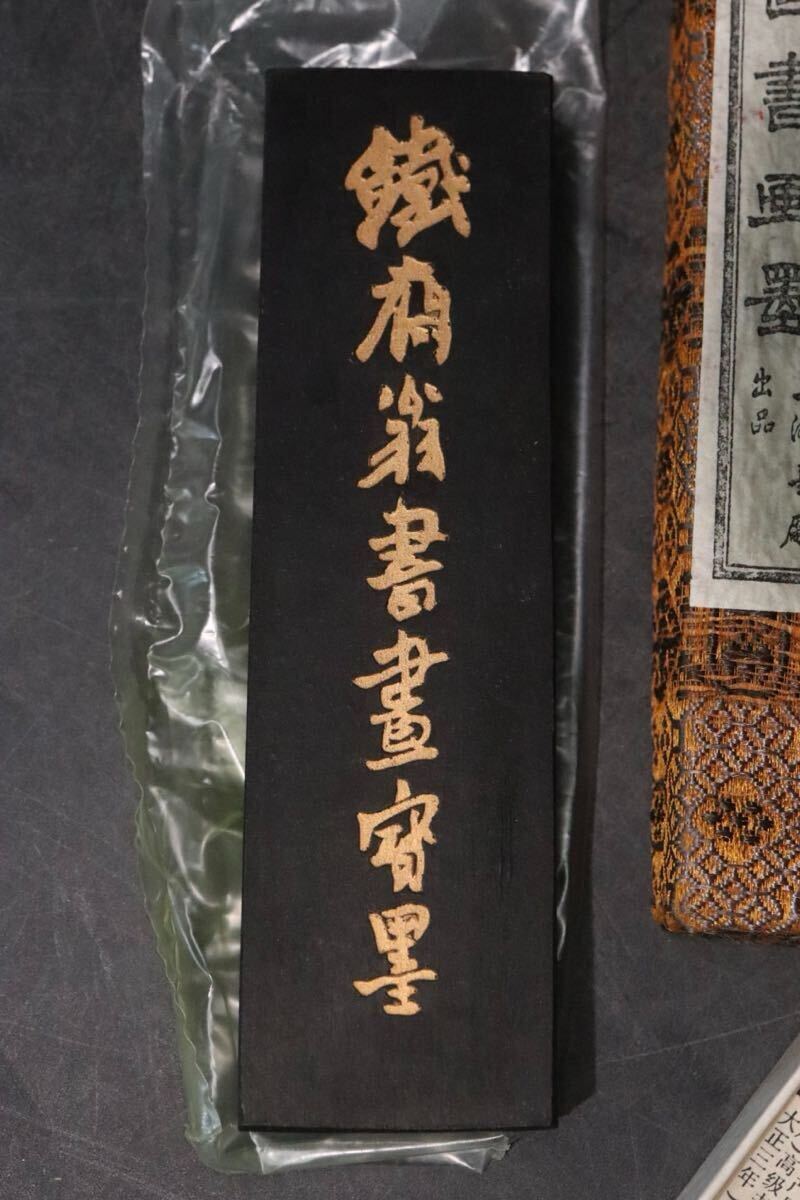 鐵齋翁書畫寶墨
書画墨
出品
高级
大正三年